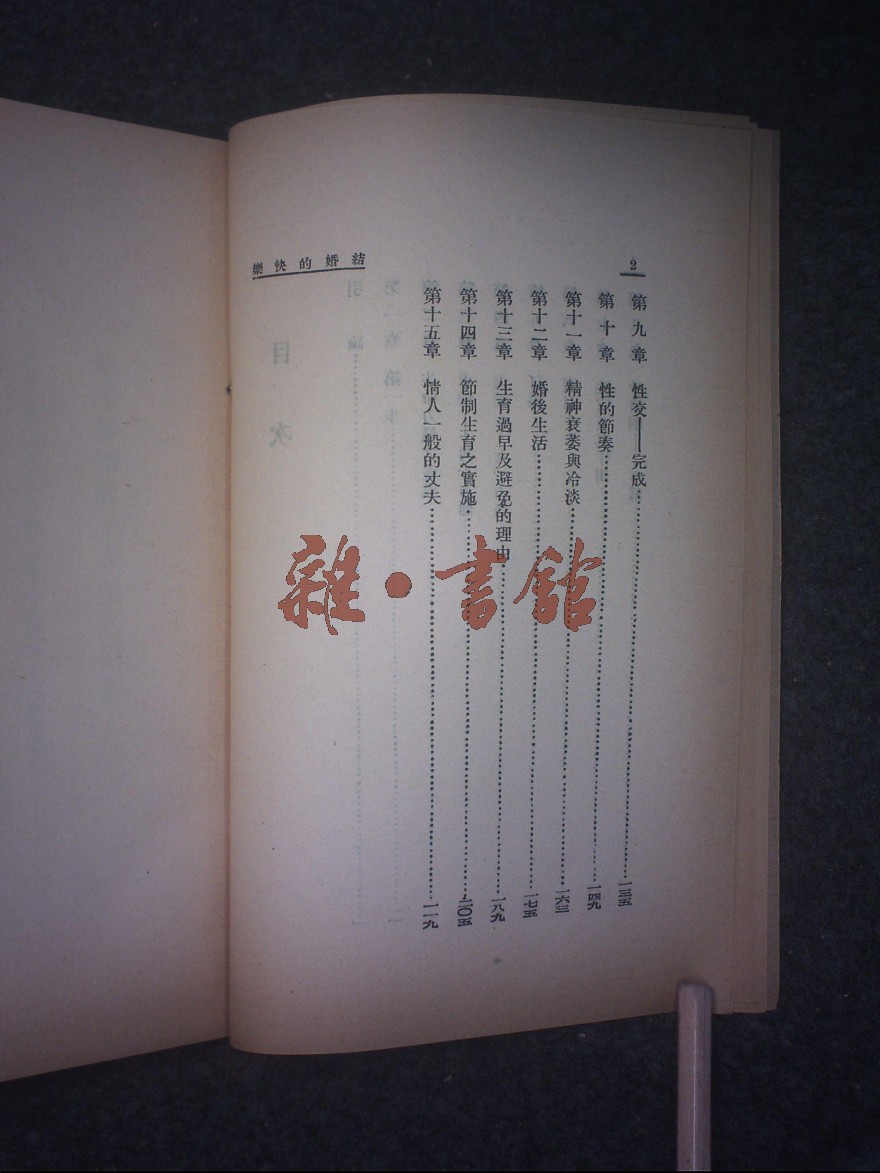 2
結婚的快樂
第九章 性交——完成……一三五
第十章 性的節奏……一四九
第十一章 精神衰萎與冷淡……一六三
第十二章 婚後生活……一七五
第十三章 生育過早及避免的理由……一八九
第十四章 節制生育之實施……二〇五
第十五章 情人一般的丈夫……一一九
雜·書館